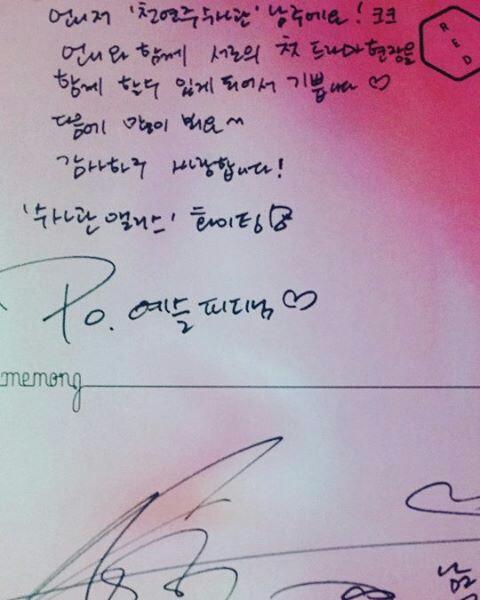 언니저 '천연주수사관' 남주예요! ㅋㅋ
언니와 함께 서로의 첫 드라마현장을
함께 할수 있게 되어서 기쁩니다 ♡
다음에 많이 봐요~
감사하구 사랑합니다!
'수사관 앨리스' 화이팅
RED
To. 예슬 피디님 ♡
memong